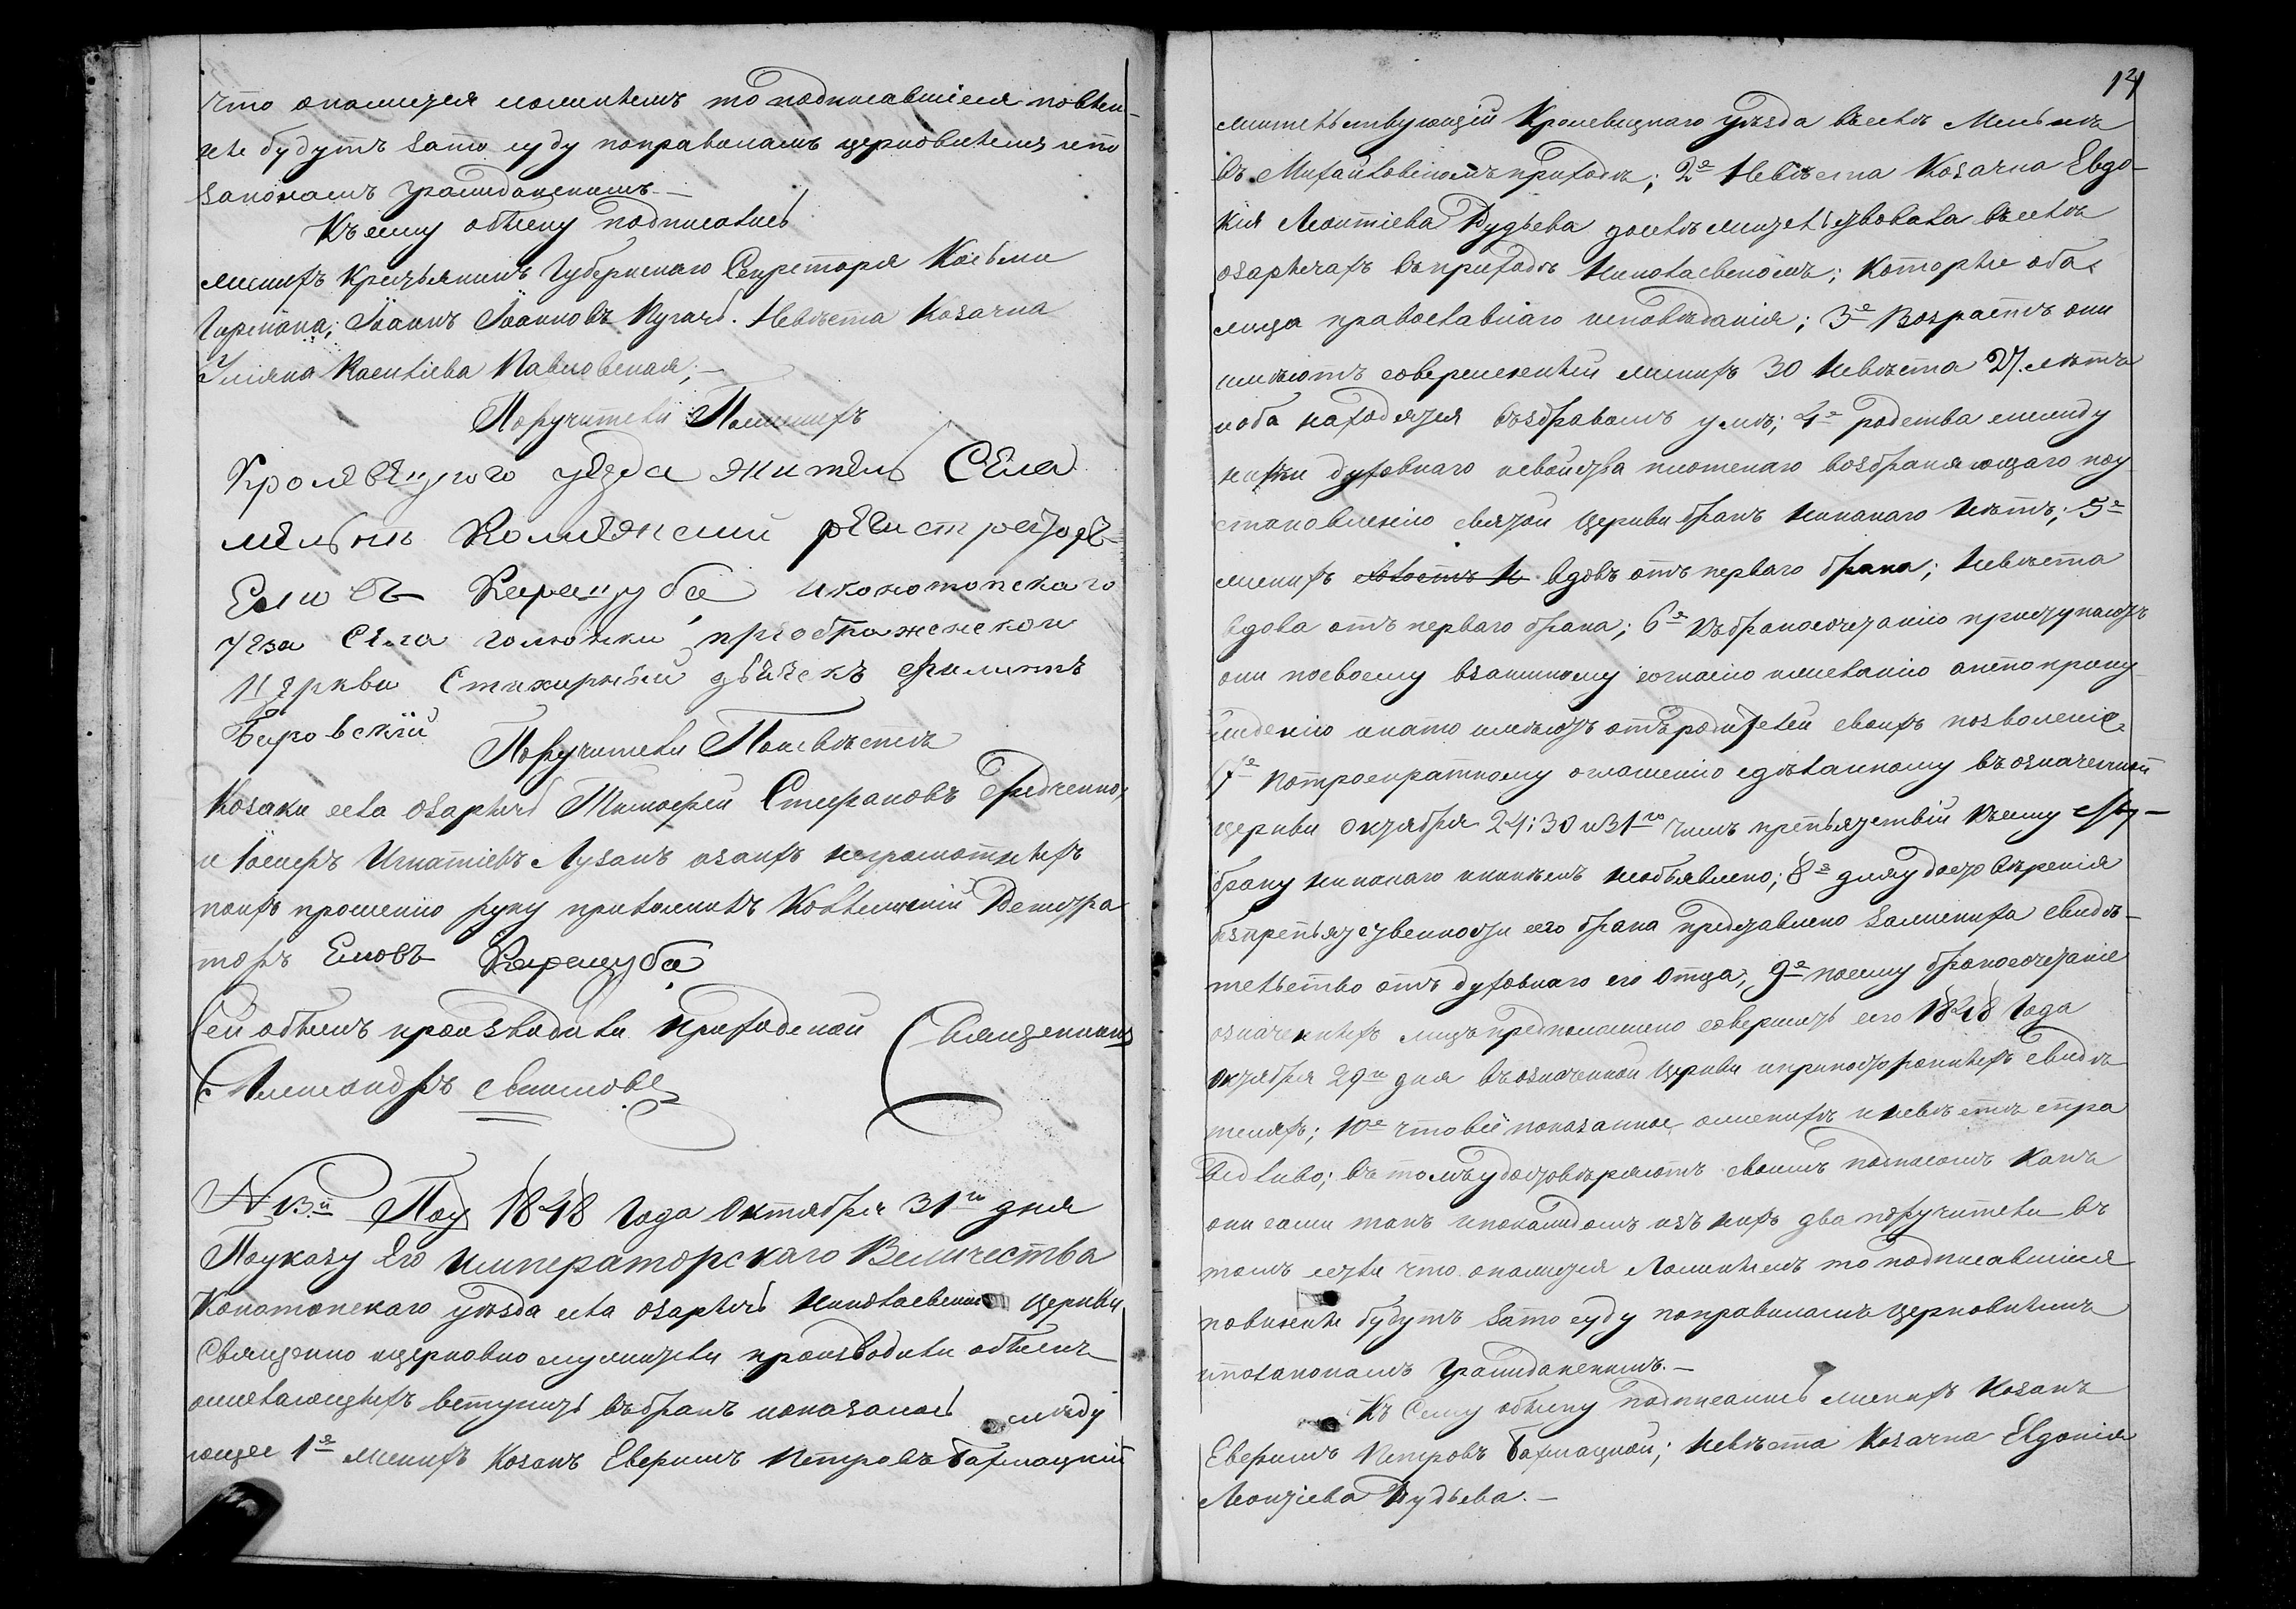 что окажется ложнымъ то подписавшіеся повин-
ные будутъ зато суду поправиламъ церковнымъ ипо
законамъ гражданскимъ.—
Къ сему обыску подписались
женихъ крестьянинъ Губернскаго Секретаря Косьмы
Іоаннъ Іоанновъ Пугачь. Невѣста Козачка
Павловская;—
Поручители По женихѣ
Кролевецкого уезда житель Села
Колежский регистраторъ
Карацуба иконотопскаго
уезда Села преображенской
Церкви Стихирный дьячекъ Филиппъ
Бировскій
Поручители По невѣстѣ
Козаки села Озаричь Тимофей Стефановъ
и Іосифъ Игнатіевъ Лузанъ азанихъ неграмотныхъ
поихъ прошенію руку приложилъ Колежскій Регистра
торъ Карацуба
Сей обыскъ производили Приходской Священникъ
Александръ
N 13.й Под 1848 Года Октября 31го дня
Поуказу Его Императорскаго Величества
Конотопскаго уѣзда села Озаричь Николаевской церкви
Священно ицерковно служители производили обыскъ
ожелающихъ вступить въбракъ ипоказалось слѣду
ющее 1е женихъ Козакъ Петровъ Бахмацкій
жительствующій Кролевецкаго уѣзда въселѣ
въ Михайловскомъ приходѣ; 2е Невѣста Козачка Евдо-
кія Леонтіева Дудѣева доселѣ жительствовала въселѣ
озаричахъ въприходѣ Николаевскомъ; Которые оба
лица православнаго исповѣданія; 3е Возрастъ они
имѣютъ совершенный женихъ 30 невѣста 27. лѣтъ
иоба находятся въздравомъ умѣ; 4е родства между
ними духовнаго исвойства плотскаго возбраняющаго поу
становленію святой Церкви бракъ никакого нѣтъ; 5е
женихъ вдовъ отъ перваго брака; невѣста
вдова отъ перваго брака; 6е къбракосочетанію приступаютъ
они посвоему взаимному согласію ижеланію анепоприну
жденію инато имѣютъ отъродителей своихъ позволеніе
7е потроекратному оглашенію сдѣланному въозначенной
церкви октября 24; 30 и31го числъ препятствій къ сему
браку никакого никѣмъ необъявлено; 8е дляудостовѣренія
безпрепятственности сего брака представлено заженихѣ свидѣ-
тельство отъ духовнаго его отца; 9е посему бракосочетаніе
означенныхъ лицъ предположено совершить сего 1848 Года
октября 29го дня въозначенной Церкви иприпостороннихъ свидѣ
теляхъ; 10е что всё показанное оженихѣ иневѣстѣ спра
ведливо; въ томъ удостовѣряютъ своимъ подписомъ какъ
они сами такъ ипокаждомъ изъ нихъ два поручители въ
томъ если что окажется Ложнымъ то подписавшіеся
повинные будутъ зато суду поправиламъ церковнымъ
ипозаконамъ гражданскимъ.—
Къ Сему обыску подписались женихъ Козакъ
Петровъ Бахмацкой; невѣста Козачка Евдокія
Леонтіева Дудѣева.—